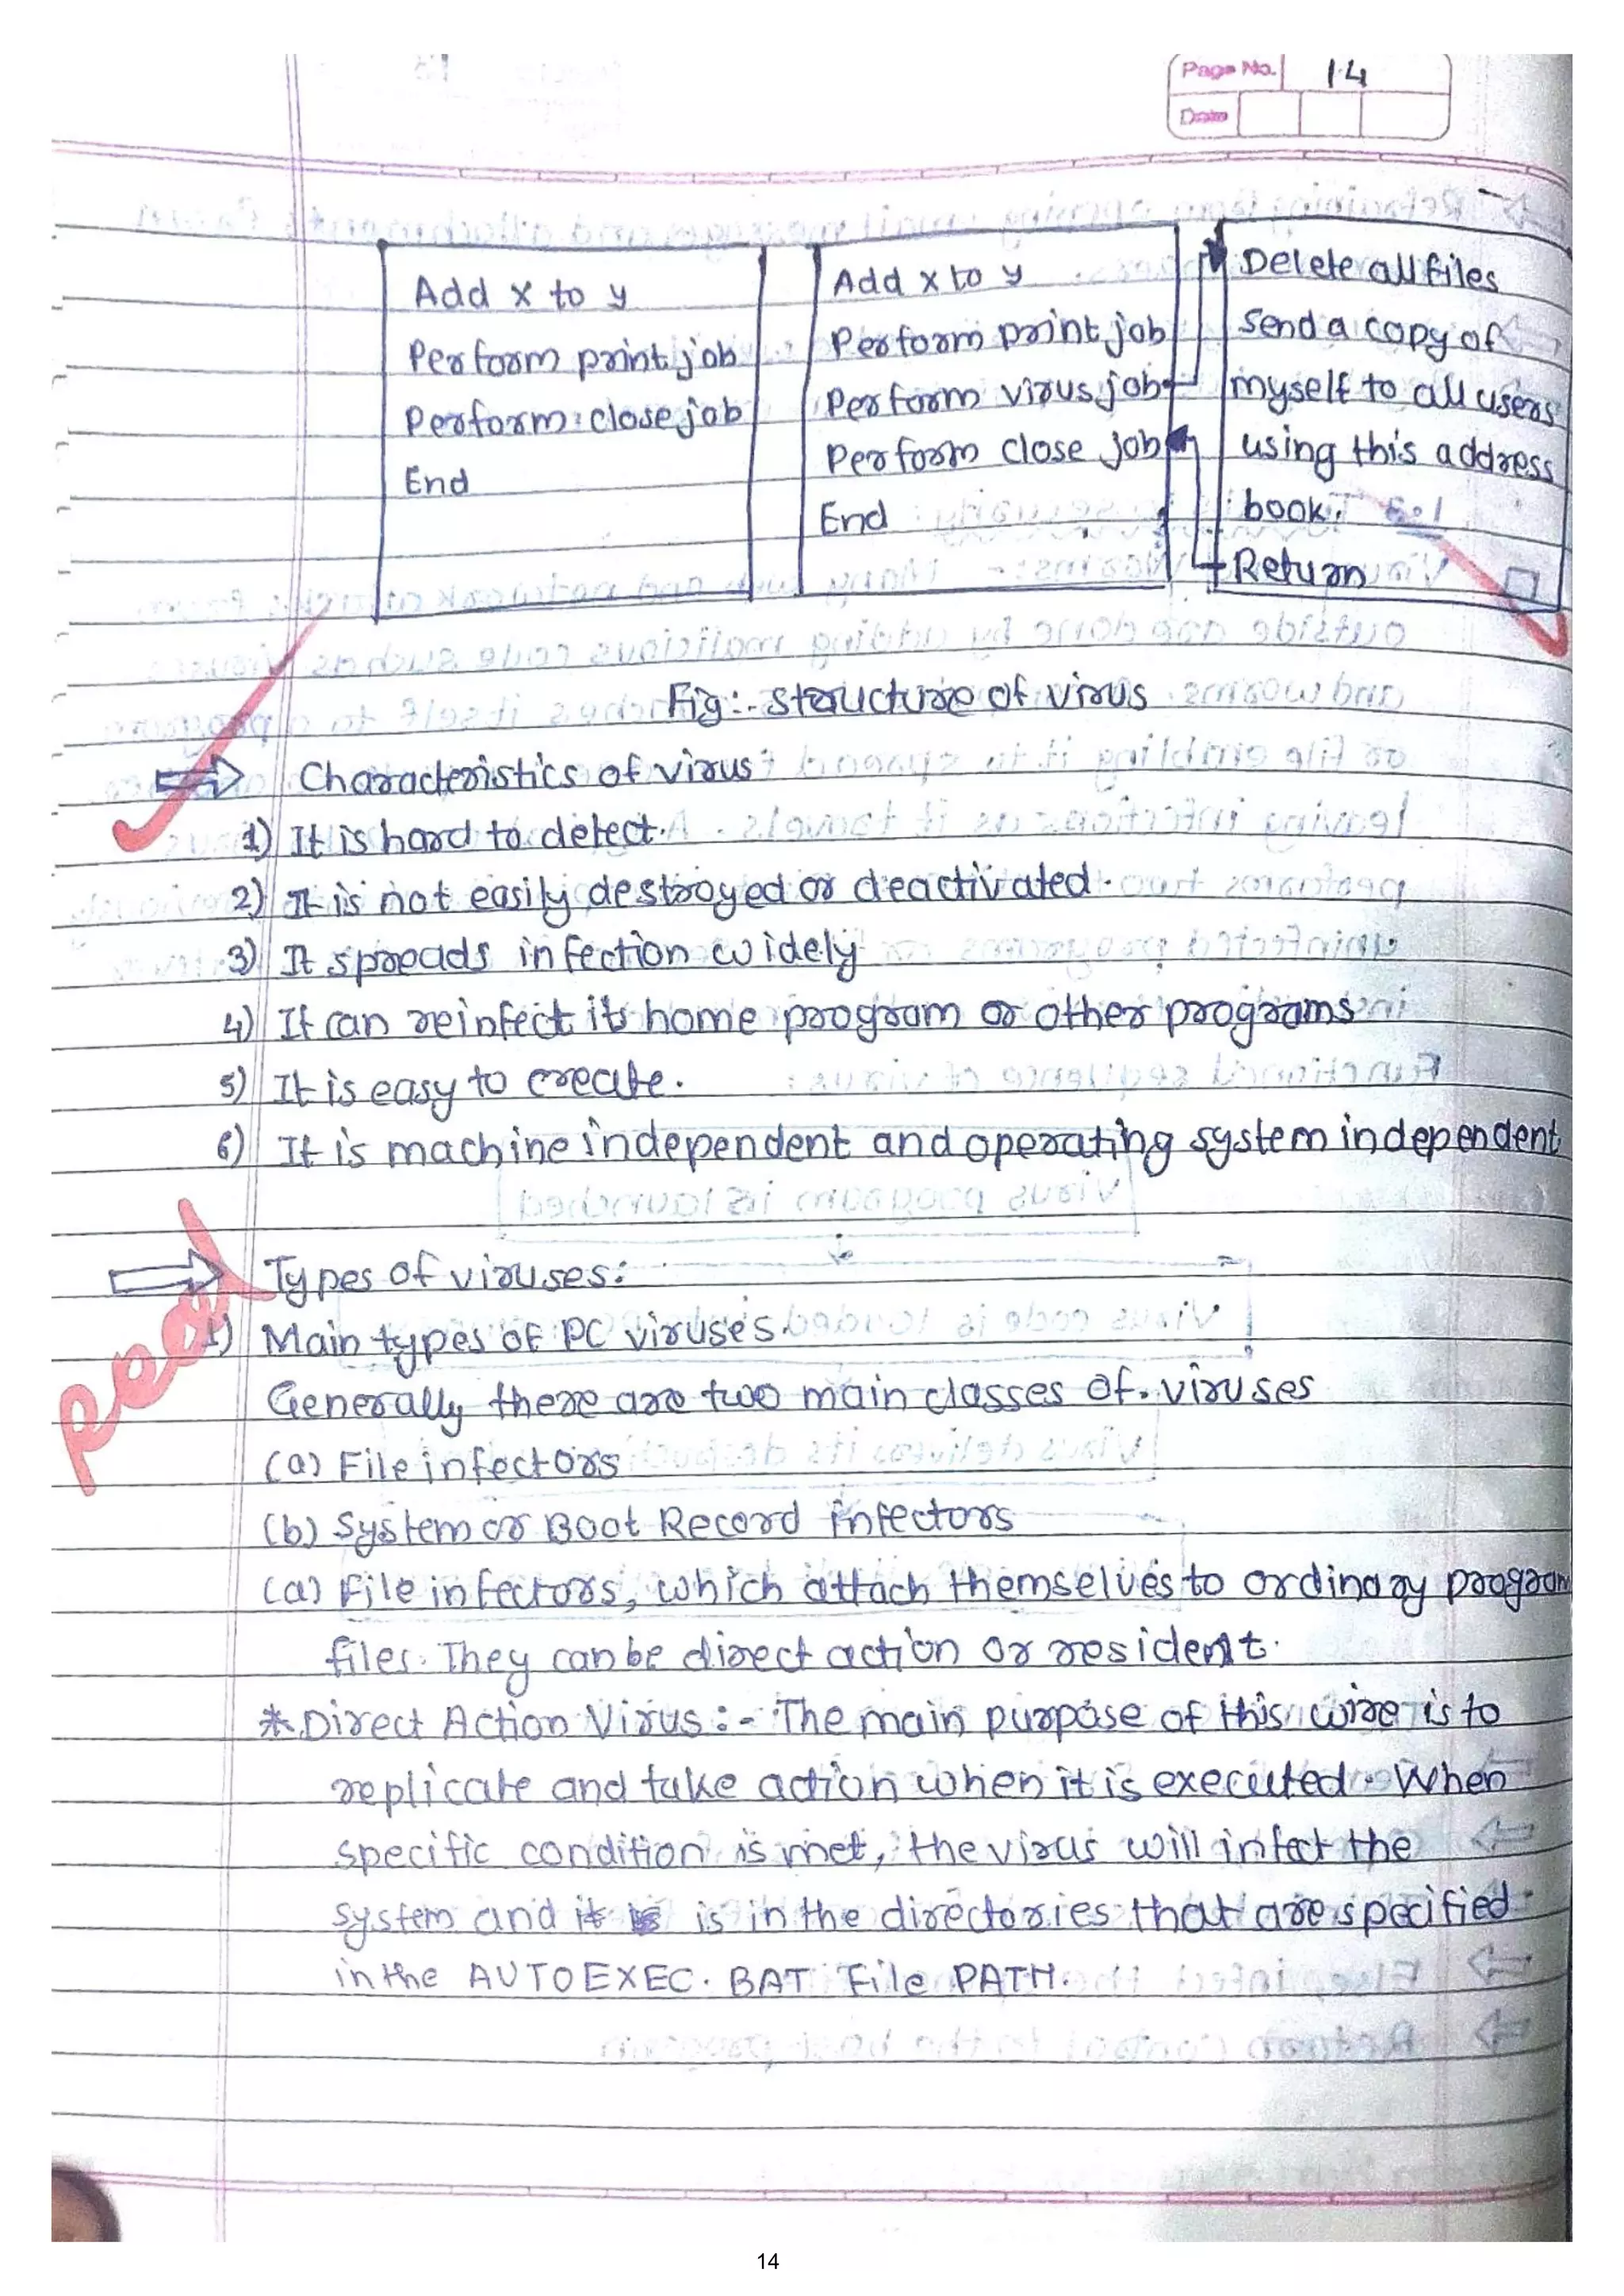 Page No. 14
Date
Add x to y
Perform print job
Perform close job
End
Add x to y
Perform print job
Perform virus job
Perform close job
End
Delete all files
Send a copy of
myself to all users
using this address
book.
Return
Fig:- Structure of virus
Characteristics of virus
1) It is hard to detect.
2) It is not easily destroyed or deactivated.
3) It spreads infection widely
4) It can reinfect its home program or other programs
5) It is easy to create.
6) It is machine independent and operating system independent
Types of viruses:
1) Main types of PC viruses.
Generally there are two main classes of viruses
(a) File infectors
(b) System or Boot Record infectors
(a) File infectors, which attach themselves to ordinary program
files. They can be direct action or resident.
* Direct Action Virus:- The main purpose of this wire is to
replicate and take action when it is executed. When
specific condition is met, the virus will infect the
system and is in the directories that are specified
in the AUTOEXEC. BAT File PATH.
14